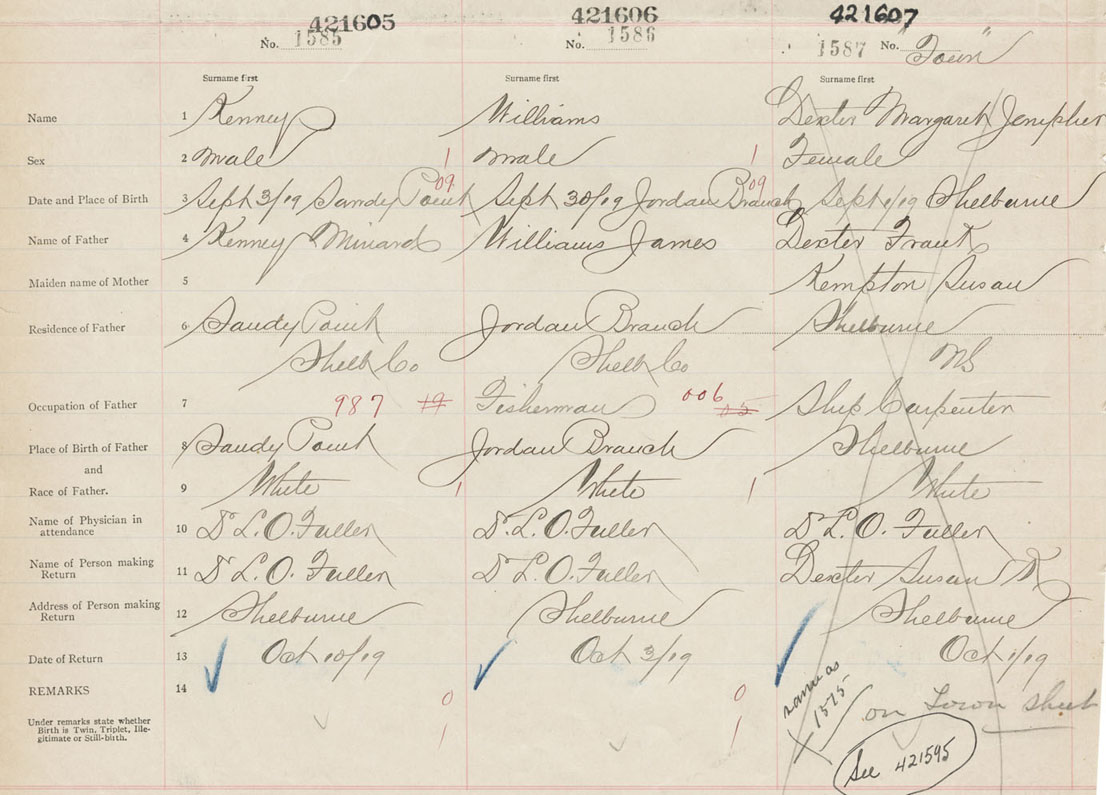 421605 421606 421607
No. 1585 No. 1586 1587 No. "Town"
Surname first Surname first Surname first
Name 1 Kenney Williams Dexter Margaret Jenepher
Sex 2 Male 1 Male 1 Female
09 09
Date and Place of Birth 3 Sept 3/19 Sandy Point Sept 30/19 Jordan Branch Sept 1/19 Shelburne
Name of Father 4 Kenney Minard Williams James Dexter Frank
Maiden name of Mother 5 Kempton Susan
Residence of Father 6 Sandy Point Jordan Branch Shelburne
Shelb Co Shelb Co NS
Occupation of Father 7 987 19 Fisherman 006 05 Ship Carpenter
Place of Birth of Father 8 Sandy Point Jordan Branch Shelburne
and
Race of Father. 9 White 1 White 1 White
Name of Physician in
attendance 10 Dr L. O. Fuller Dr. L. O. Fuller Dr L. O. Fuller
Name of Person making
Return 11 Dr L. O. Fuller Dr L. O. Fuller Dexter Susan K
Address of Person making
Return 12 Shelburne Shelburne Shelburne
Date of Return 13 Oct 10/19 Oct 3/19 Oct 1/19
REMARKS 14 0 0 same as
1575
on Town sheet
Under remarks state whether
Birth is Twin, Triplet, Ille-
gitimate or Still-birth. 1 1
See 421595